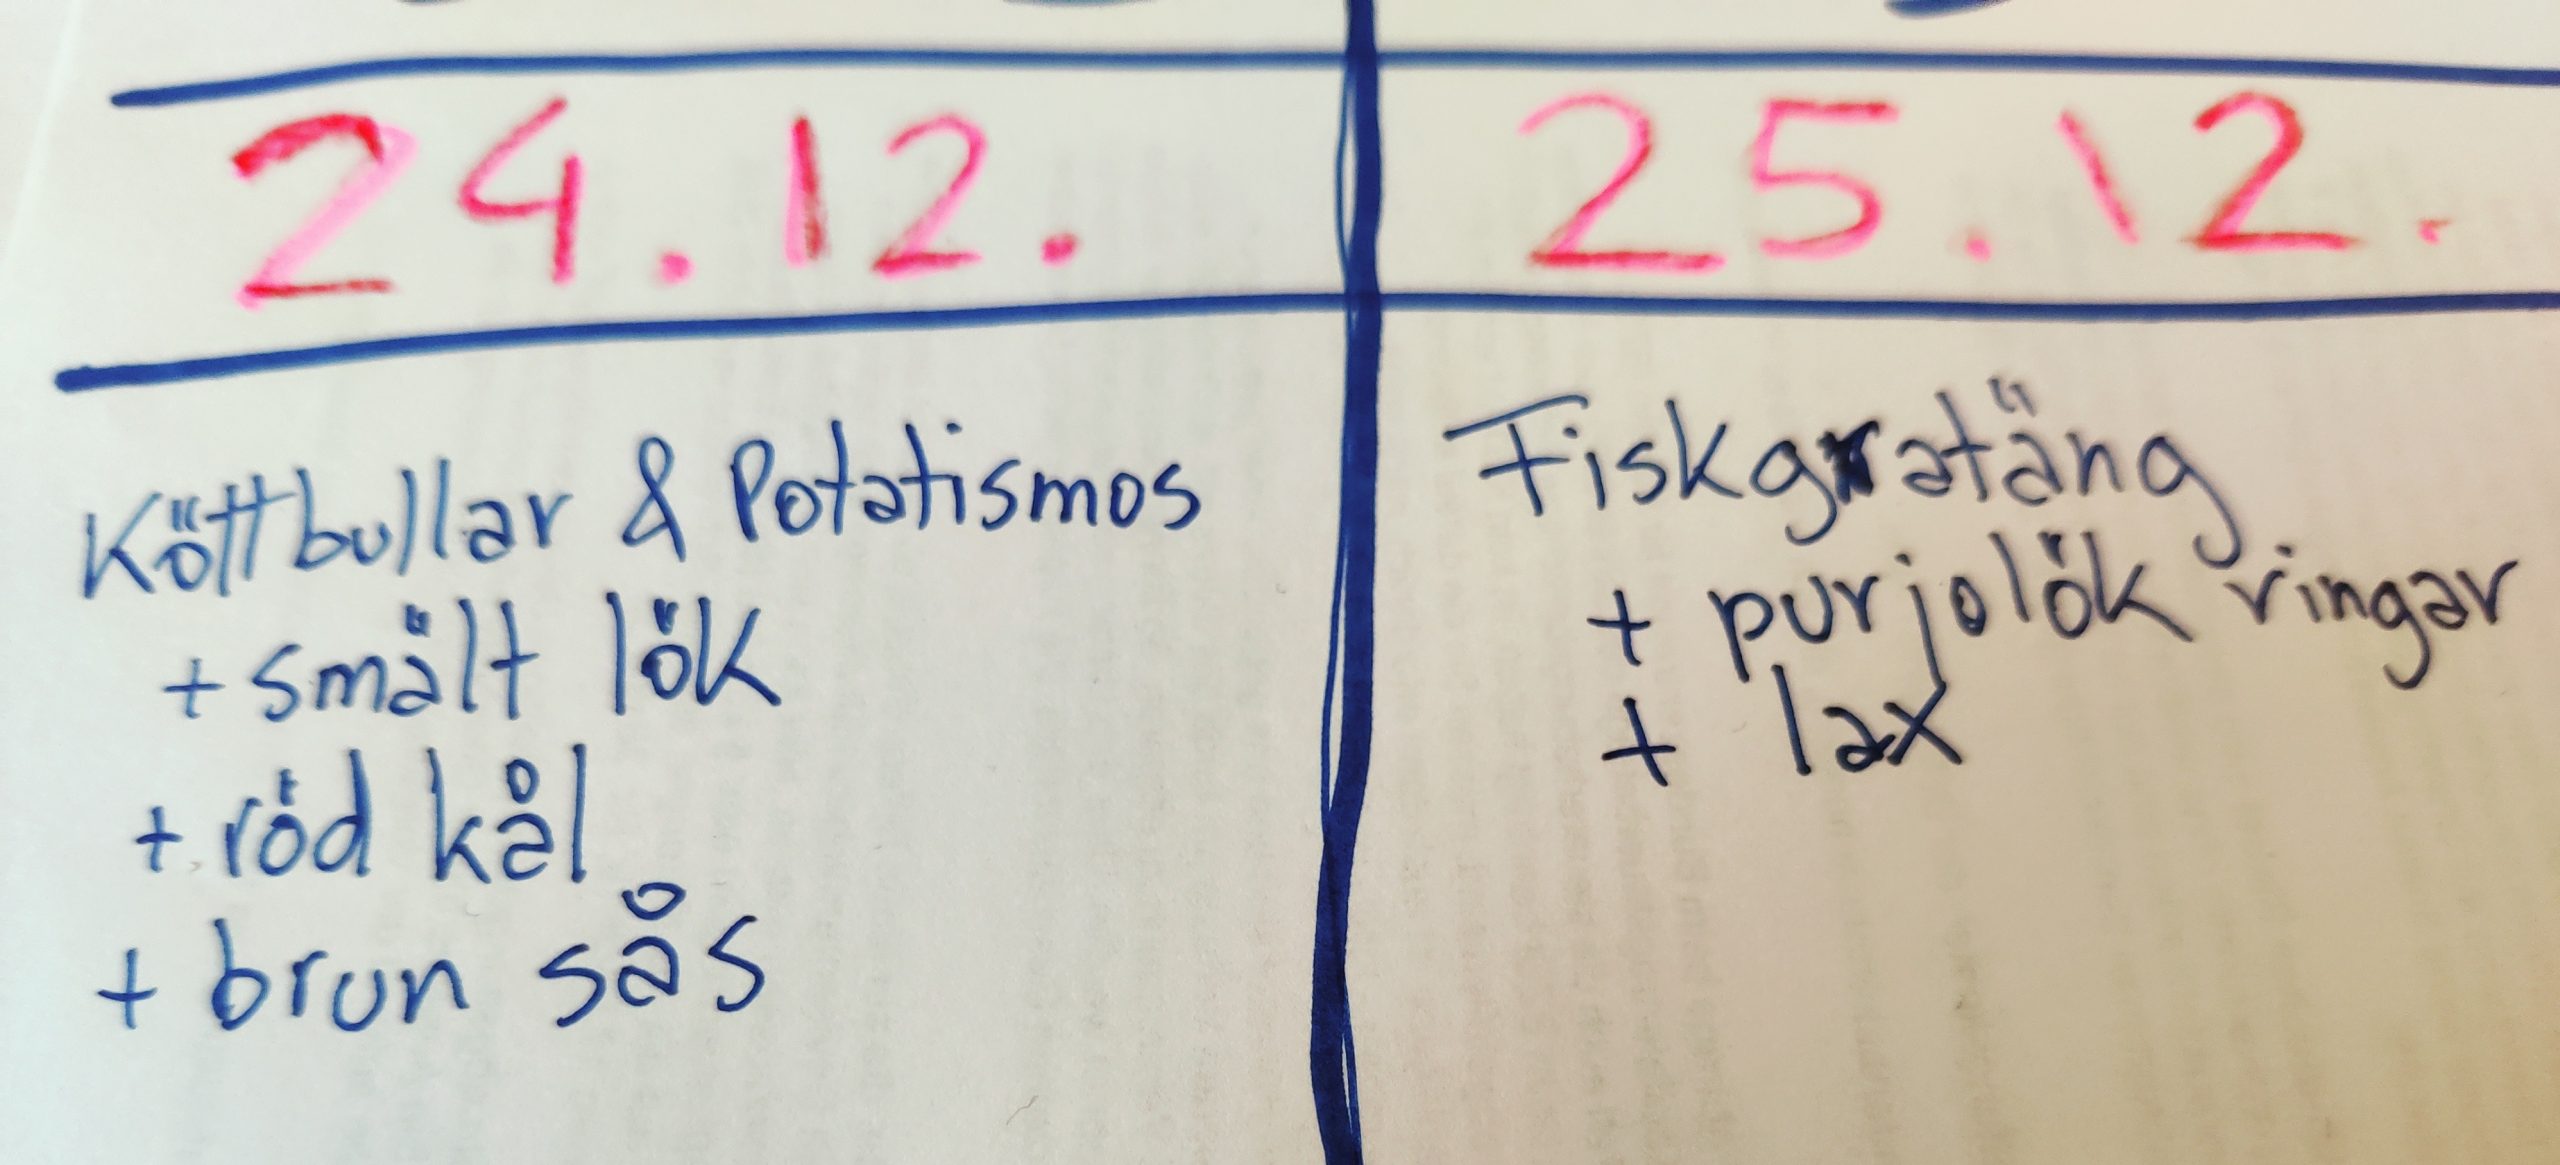 24.12.
Köttbullar & Potatismos
+ smält lök
+ röd kål
+ brun sås
25.12.
Fiskgratäng
+ purjolök ringar
+ lax